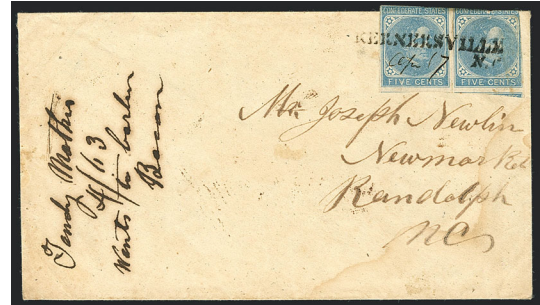 CONFEDERATE STATES CONFEDERATE STATES
KERNERSVILLE
N.C
Apl 17
FIVE CENTS FIVE CENTS
Mr. Joseph Newlin
Newmarket
Randolph
NC
Tandy Mathis
4/63
Wants to barter
Bacon